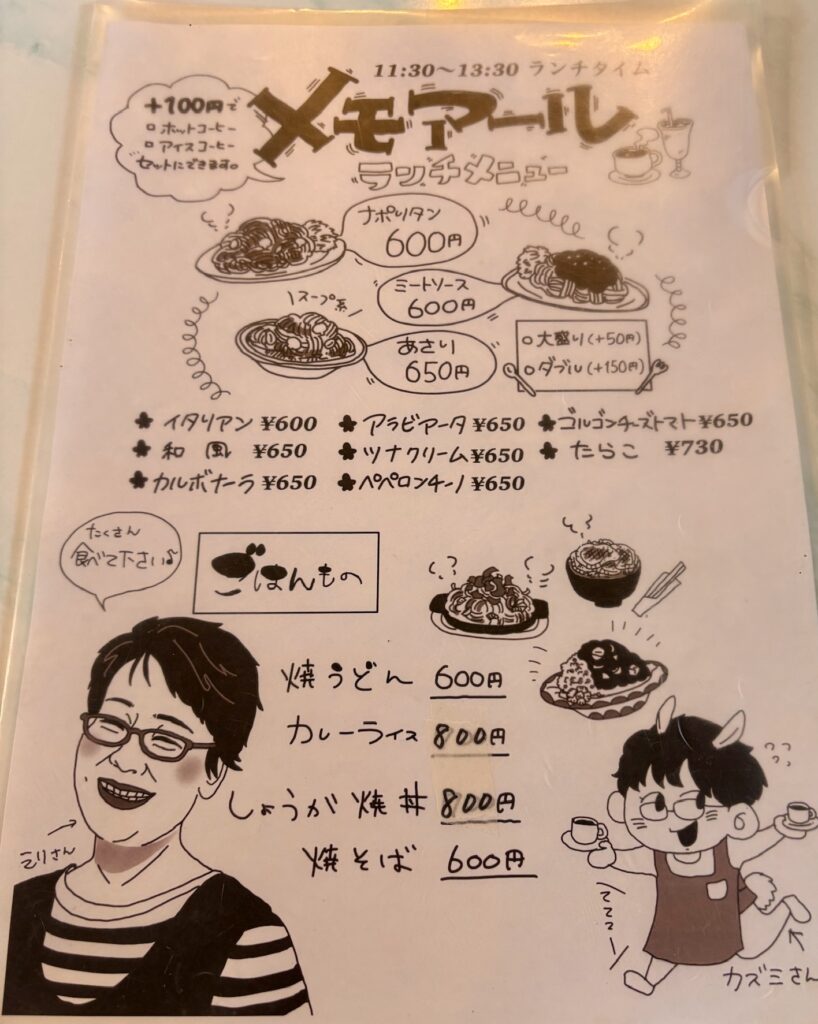 11:30〜13:30 ランチタイム
+100円で
ホットコーヒー
アイスコーヒー
セットにできます。
メモアール
ランチメニュー
ナポリタン
600円
ミートソース
600円
スープ系
あさり
650円
大盛り(+50円)
ダブル(+150円)
イタリアン ¥600
アラビアータ ¥650
ゴルゴンチーズトマト ¥650
和風 ¥650
ツナクリーム ¥650
たらこ ¥730
カルボナーラ ¥650
ペペロンチーノ ¥650
たくさん
食べて下さい♪
ごはんもの
焼うどん 600円
カレーライス 800円
しょうが焼丼 800円
焼そば 600円
さん
カズミさん